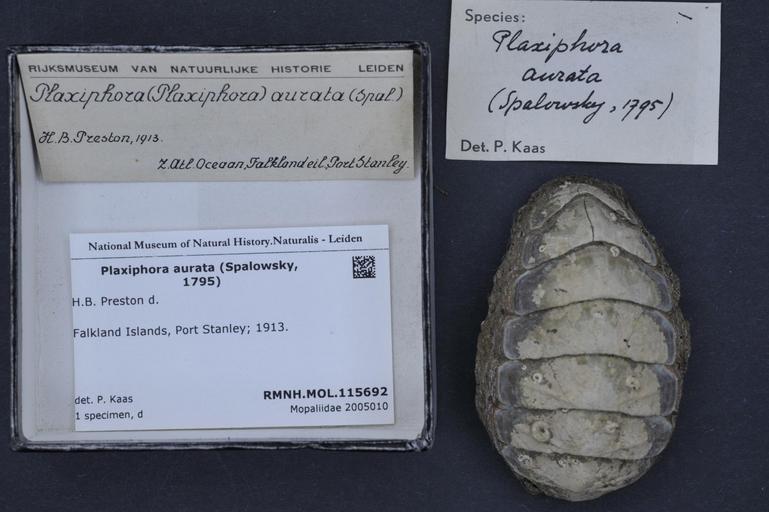 RIJKSMUSEUM VAN NATUURLIJKE HISTORIE LEIDEN
Plaxiphora (Plaxiphora) aurata (Spal.)
H.B. Preston, 1913.
Z. Atl. Oceaan, Falklandeil, Port Stanley.
National Museum of Natural History.Naturalis - Leiden
Plaxiphora aurata (Spalowsky,
1795)
H.B. Preston d.
Falkland Islands, Port Stanley; 1913.
det. P. Kaas
1 specimen, d
RMNH.MOL.115692
Mopaliidae 2005010
Species:
Plaxiphora
aurata
(Spalowsky, 1795)
Det. P. Kaas